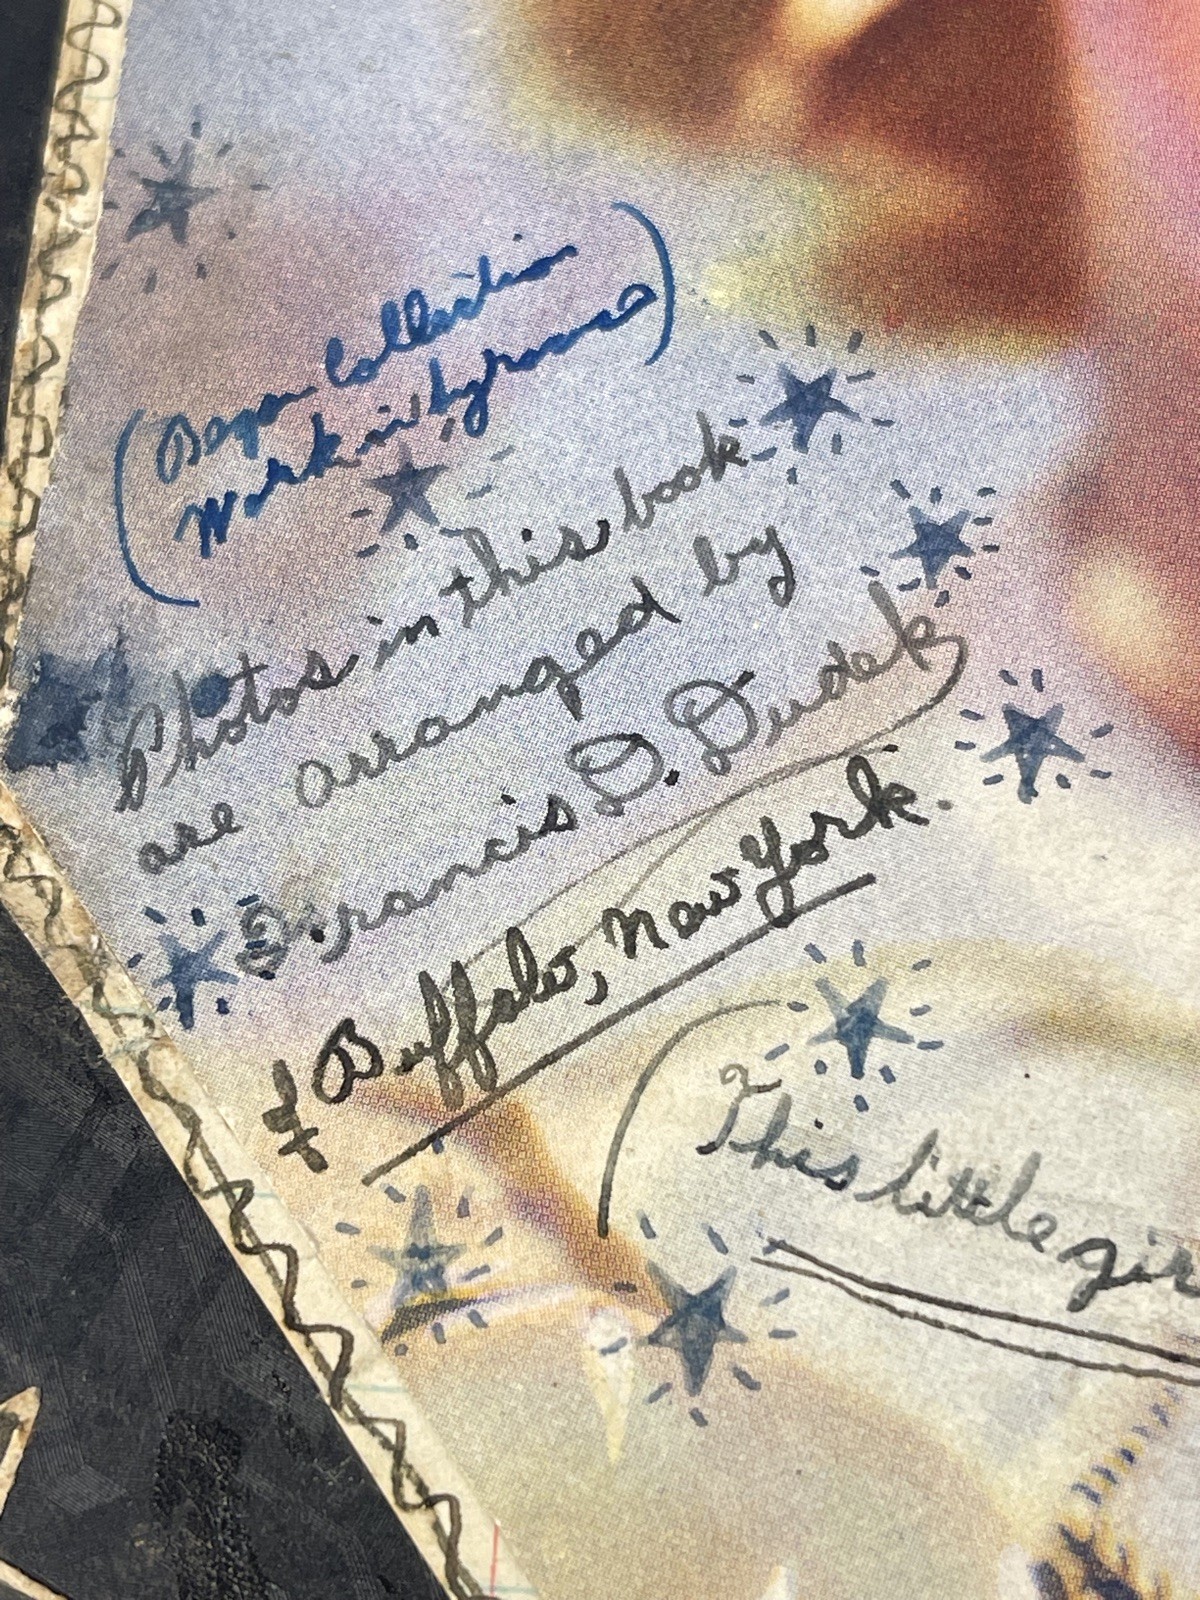 (Began Collection
Work in by )
Photos in this book
are arranged by
Francis D. Dudek
of Buffalo, New York.
This little gir